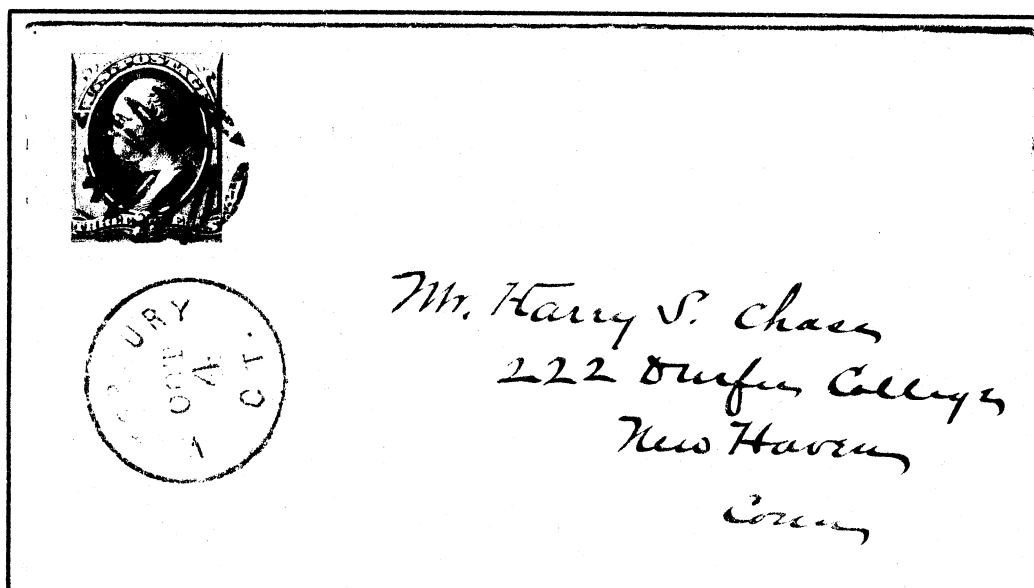 U.S. POSTAGE
THREE CENTS
URY
OCT
4
1
CT.
Mr. Harry S. Chase
222 Durfee College
New Haven
Conn